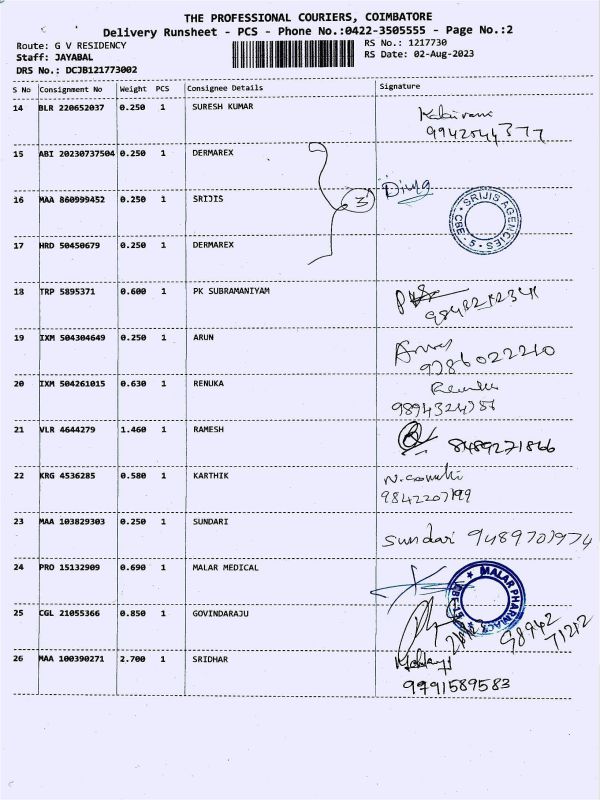 THE PROFESSIONAL COURIERS, COIMBATORE
Delivery Runsheet - PCS - Phone No.:0422-3505555 - Page No.:2
Route: G V RESIDENCY
RS No.: 1217730
Staff: JAYABAL
RS Date: 02-Aug-2023
DRS No.: DCJB121773002
S No Consignment No Weight PCS Consignee Details Signature
14 BLR 220652037 0.250 1 SURESH KUMAR
9942544377
15 ABI 20230737504 0.250 1 DERMAREX
16 MAA 860999452 0.250 1 SRIJIS 3
SRIJIS AGENCIES CBE-5
17 HRD 50450679 0.250 1 DERMAREX
18 TRP 5895371 0.600 1 PK SUBRAMANIYAM
19 IXM 504304649 0.250 1 ARUN
9786022210
20 IXM 504261015 0.630 1 RENUKA Renuka
21 VLR 4644279 1.460 1 RAMESH 8489271866
22 KRG 4536285 0.580 1 KARTHIK
9842207199
23 MAA 103829303 0.250 1 SUNDARI Sundari 9489701974
24 PRO 15132909 0.690 1 MALAR MEDICAL
MALAR PHARMACY
25 CGL 21055366 0.850 1 GOVINDARAJU
98942
71212
26 MAA 100390271 2.700 1 SRIDHAR
9791589583